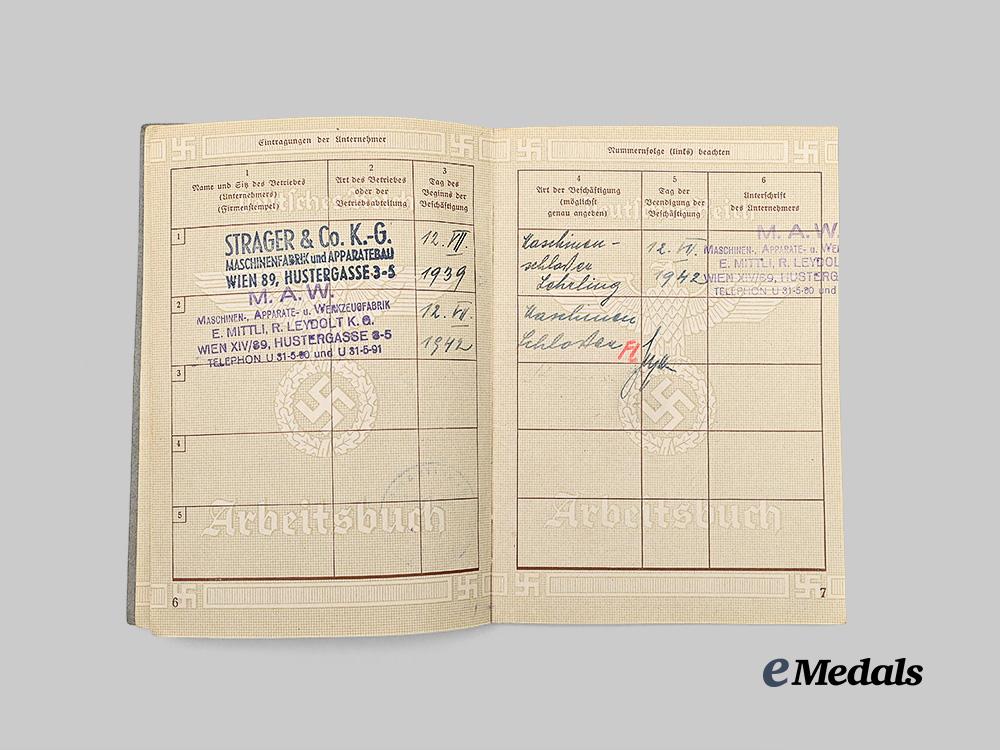 Eintragungen der Unternehmer
1
Name und Sitz des Betriebes
(Unternehmers)
(Firmenstempel)
2
Art des Betriebes
oder der
Betriebsabteilung
3
Tag des
Beginns der
Beschäftigung
1
STRAGER & Co. K.-G.
MASCHINENFABRIK und APPARATEBAU
WIEN 89, HUSTERGASSE 3-5
12. VII.
1939
2
M. A. W.
MASCHINEN-, APPARATE- u. WERKZEUGFABRIK
E. MITTLI, R. LEYDOLT K. G.
WIEN XIV/89, HUSTERGASSE 3-5
TELEPHON U 31-5-90 und U 31-5-91
12. VII.
1942
3
4
5
Arbeitsbuch
6
Nummernfolge (links) beachten
4
Art der Beschäftigung
(möglichst
genau angeben)
5
Tag der
Beendigung der
Beschäftigung
6
Unterschrift
des Unternehmers
Maschinen-
schlosser
Lehrling
12. VII.
1942
M. A. W.
MASCHINEN-, APPARATE- u. WE
E. MITTLI, R. LEYDOL
WIEN XIV/89, HUSTERG
TELEPHON U 31-5-90 und U
Maschinen
Schlosser
Arbeitsbuch
7
eMedals